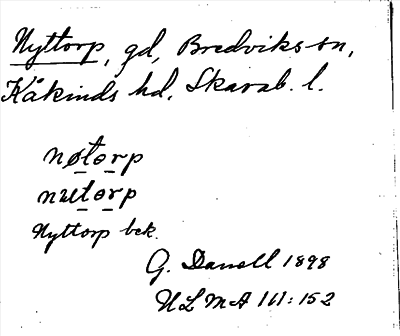 Nyttorp, gd, Bredviks sn,
Kåkinds hd, Skarab. l.
nøtorp
nutorp
Nyttorp bek.
G. Danell 1898
ULMA 111:152